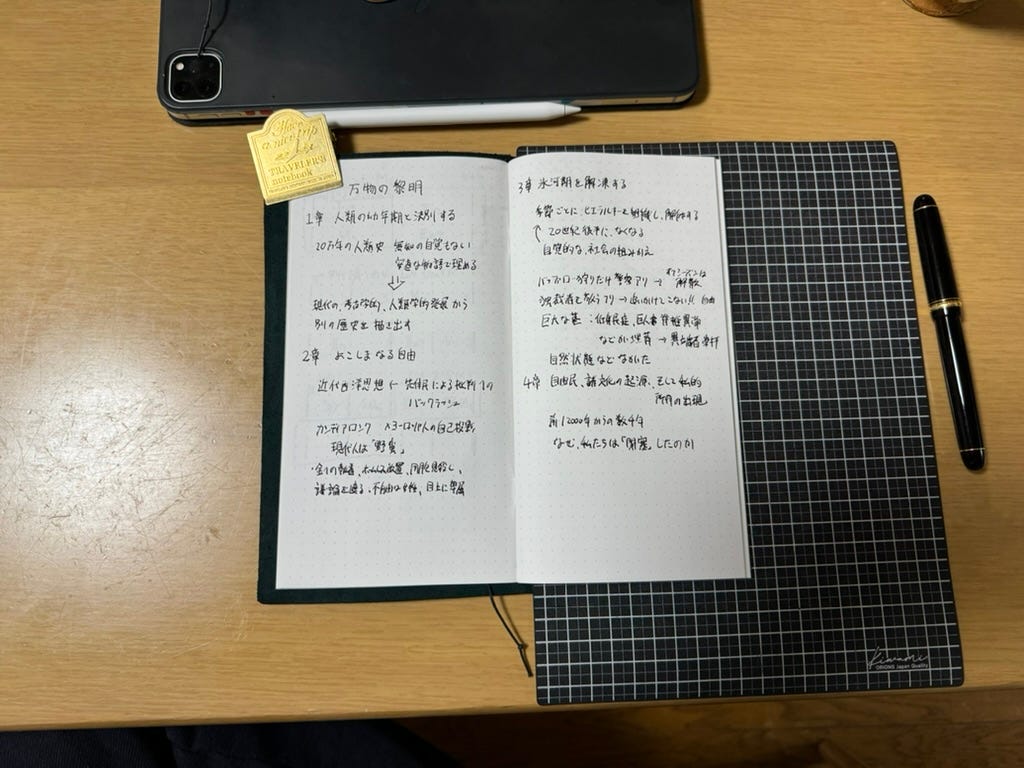 Have
a nice trip
TRAVELER'S
notebook
万物の黎明
1章 人類の幼年期と決別する
20万年の人類史 無知の自覚もない
安直な物語で埋める
⇓
現代の、考古学的、人類学的発展から
別の歴史を描き出す
2章 よこしまなる自由
近代西洋思想 ← 先住民による批判への
バックラッシュ
カンディアロンク ヨーロッパ人の自己
現代人は「野蛮」
・金への執着、
議論を遮る、不自由な女性、目上に
3章 氷河期を解凍する
季節ごとに、ヒエラルキーを組織し、解体する
↑ 20世紀後半に、なくなる
自覚的な、社会の組みかえ
バッファロー狩りだけ警察アリ → オフシーズンは
解散
独裁者を アリ → おいかけてこない!! 自由
巨大な墓:低身長症、巨人症 脊椎異常
などが埋葬 → 異端者
自然状態などなかった
4章 自由民、諸文化の起源、そして私的
所有の出現
前12000年からの数千年
なぜ、私たちは「閉塞」したのか
Kiwami
ORIONS Japan Quality